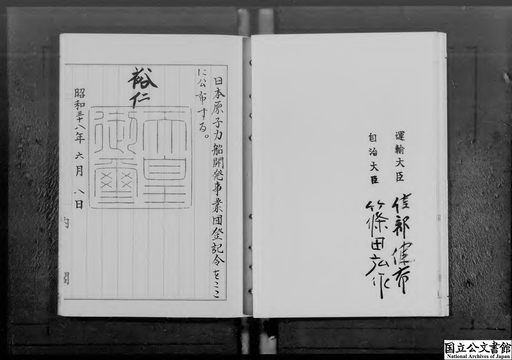 日本原子力船開発事業団登記令をここ
に公布する。
裕仁
天皇
御璽
昭和三十八年六月八日
内閣
運輸大臣
自治大臣 篠田弘作
国立公文書館
National Archives of Japan